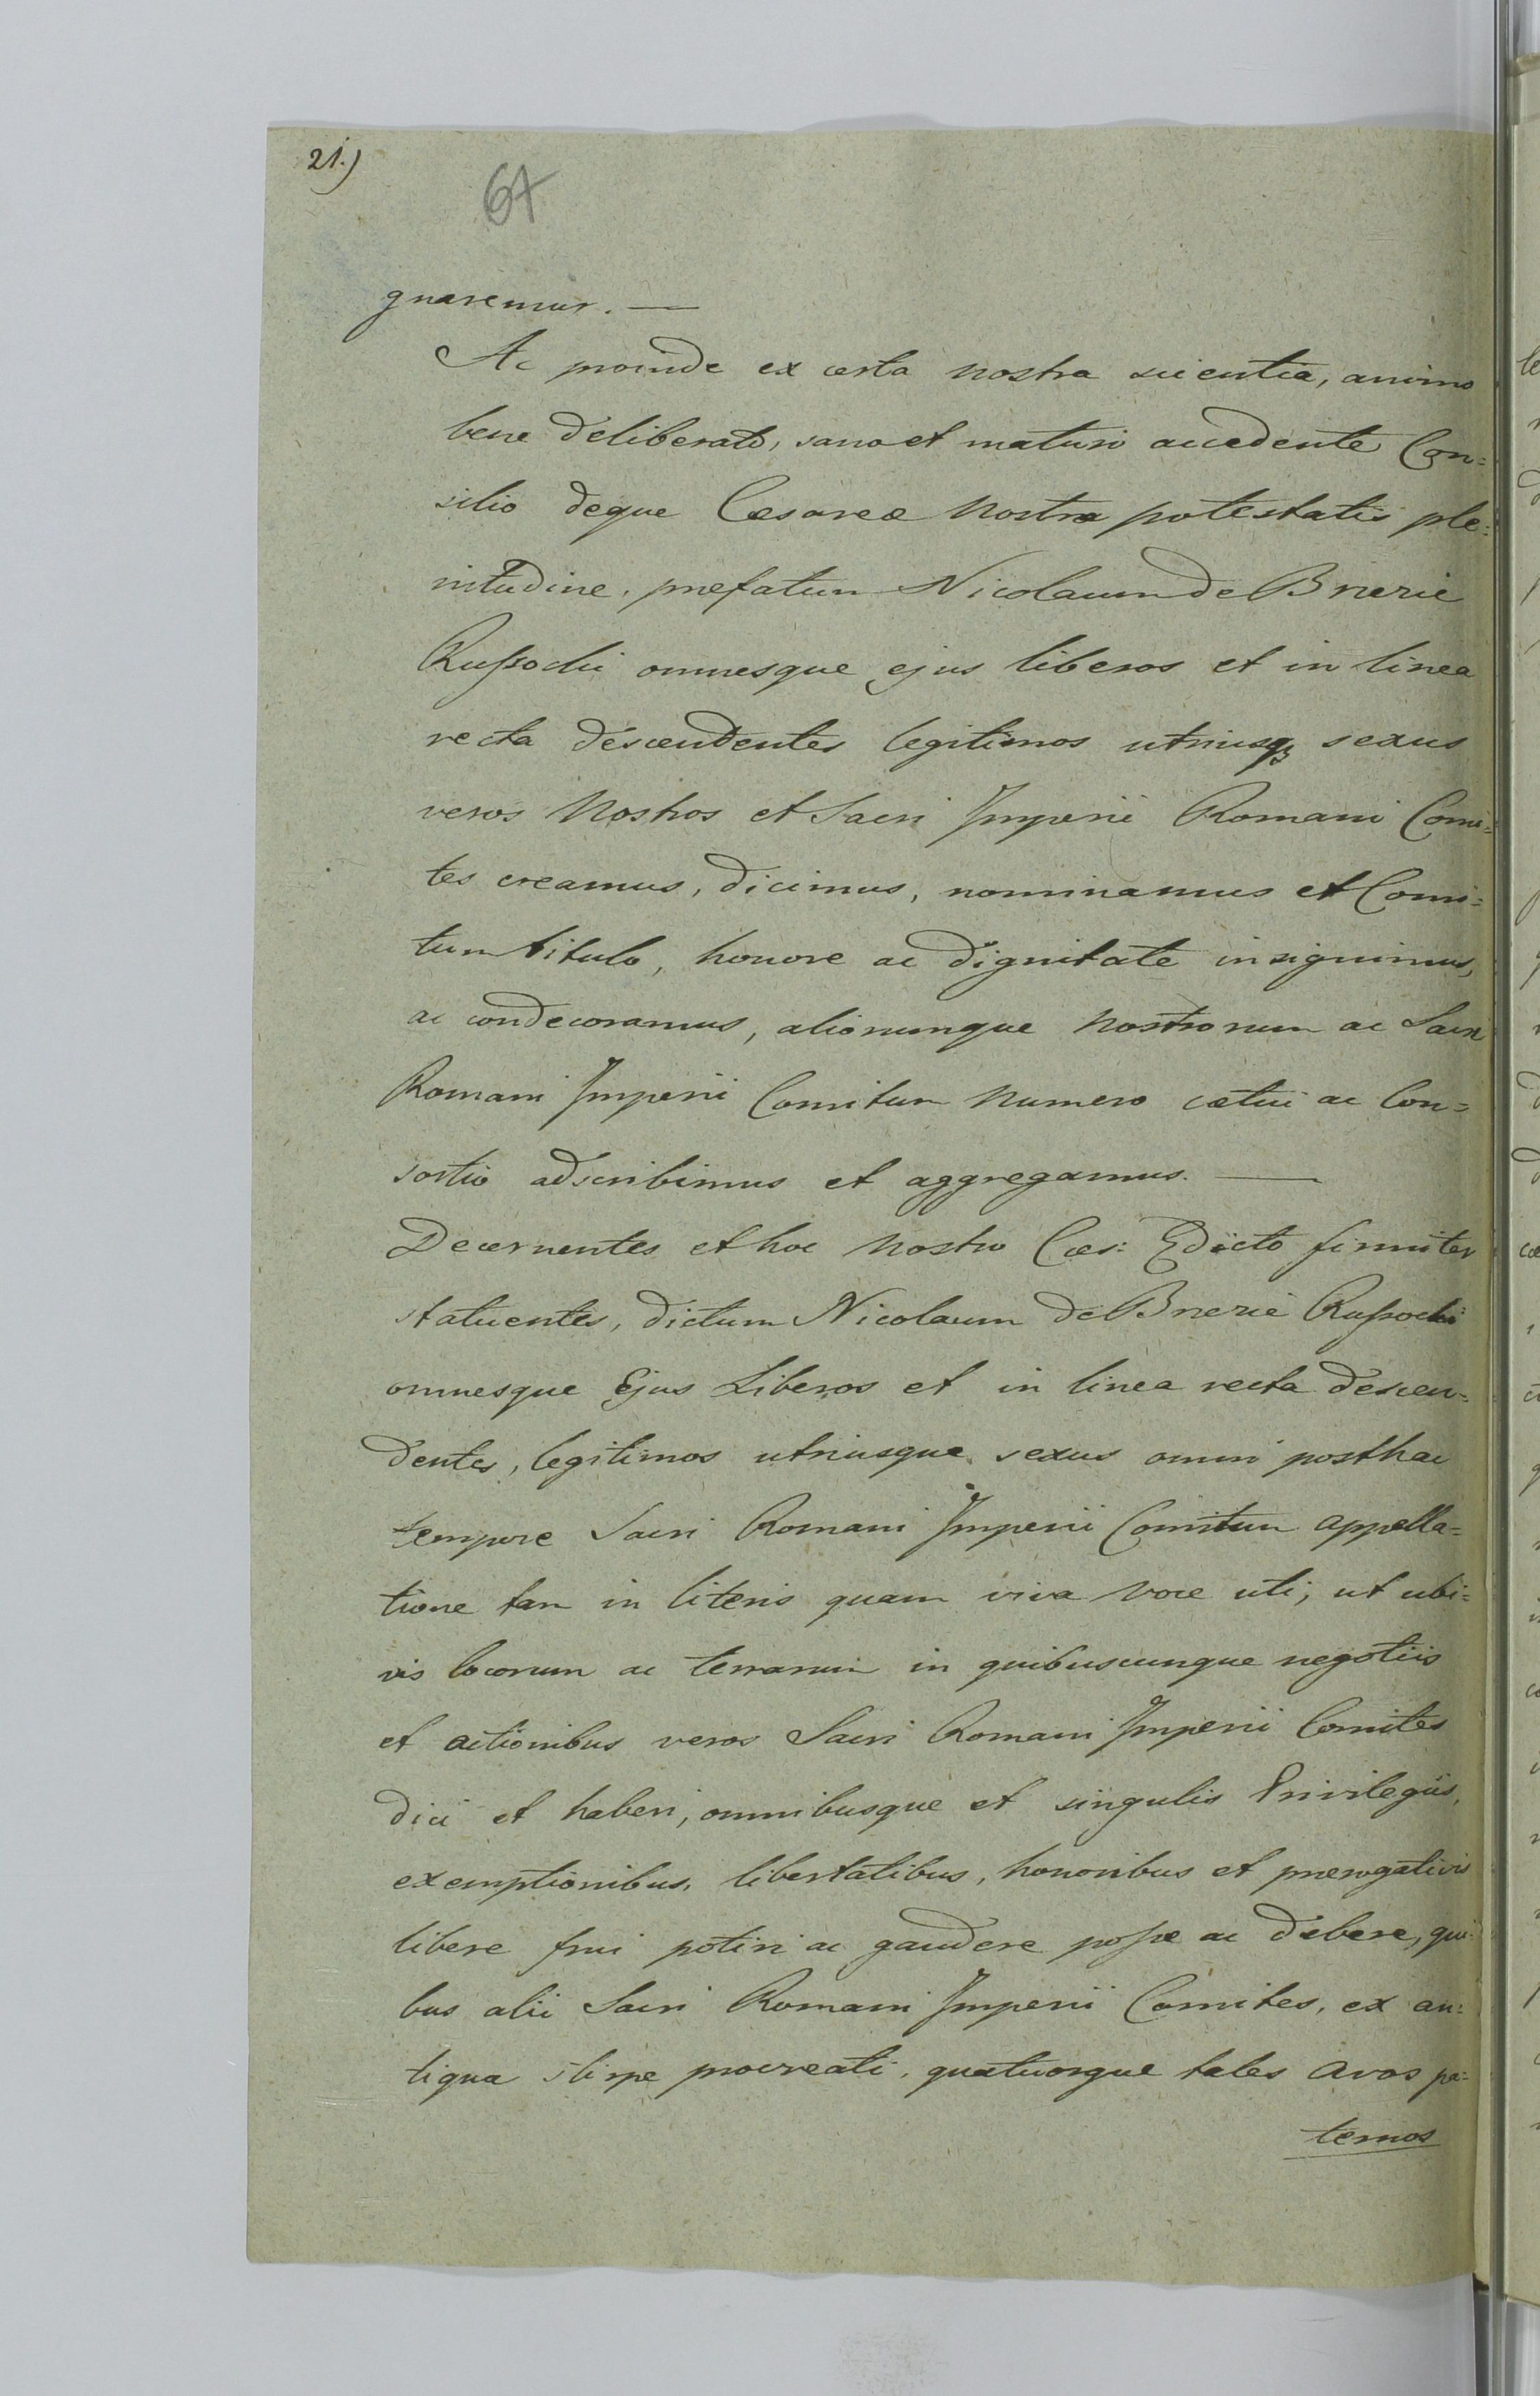 21.)
67
gnaremur. —
Ac proinde ex certa nostra scientia, animo
bene deliberato, sano et maturo accedente Con=
silio deque Cæsareæ Nostræ potestatis ple=
nitudine, prefatum Nicolaum de Brzezie
Rußocki omnesque ejus liberos et in linea
recta descendentes legitimos utriusqꝫ sexus
veros Nostros et Sacri Imperii Romani Comi=
tes creamus, dicimus, nominamus et Comi=
tum titulo, honore ac dignitate insignimus,
ac condecoramus, aliorumque Nostrorum ac Sacri
Romani Imperii Comitum Numero cætui ac Con=
sortio adscribimus et aggregamus. —
Decernentes et hoc Nostro Cæs: Edicto firmiter
statuentes, dictum Nicolaum de Brzezie Rußocki
omnesque Ejus Liberos et in linea recta descen=
dentes, legitimos utriusque sexus omni posthac
tempore Sacri Romani Imperii Comitum appella=
tione tam in literis quam viva voce uti, ut ubi=
vis locorum ac terrarum in quibuscunque negotiis
et actionibus veros Sacri Romani Imperii Comites
dici et haberi, omnibusque et singulis Privilegiis,
exemptionibus, libertatibus, honoribus et prerogativis
libere frui potiri ac gaudere poße ac debere, qui=
bus alii Sacri Romani Imperii Comites, ex an=
tiqua stirpe procreati, quatuorque tales avos pa=
ternos